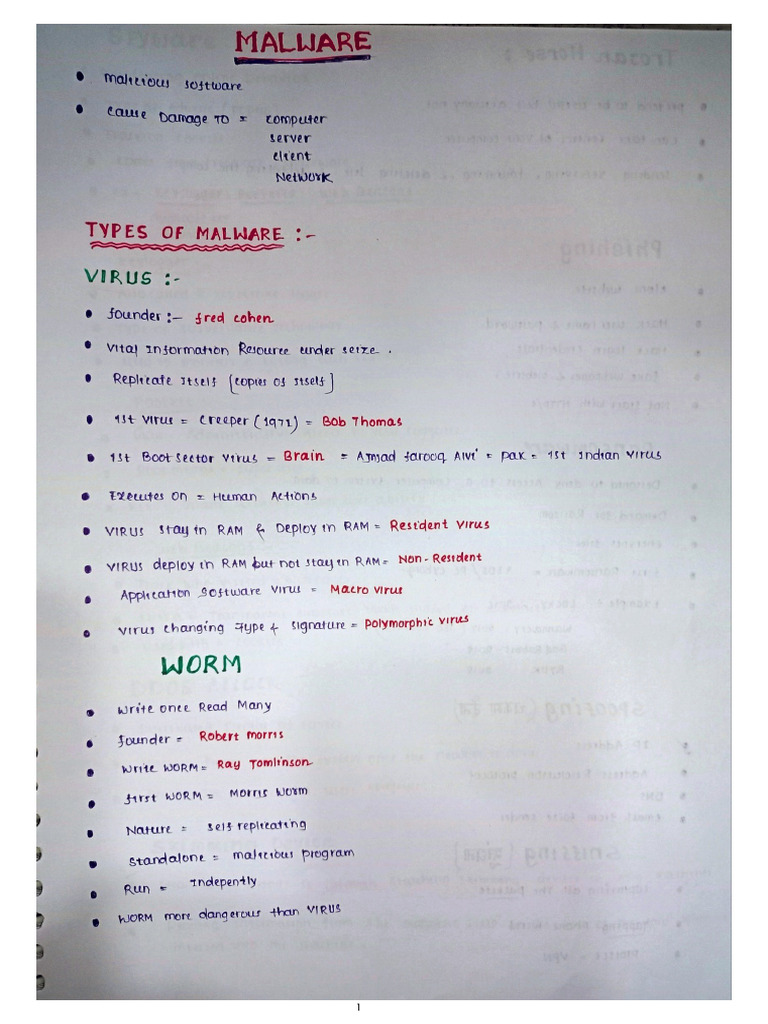 MALWARE
• Malicious software
• Cause Damage TO = Computer
server
client
Network
TYPES OF MALWARE :-
VIRUS :-
• founder :- fred cohen
• Vital Information Resource under seize .
• Replicate itself [copies of itself]
• 1st Virus = Creeper (1971) = Bob Thomas
• 1st Boot Sector Virus = Brain = Amjad farooq Alvi = pak = 1st Indian Virus
• Executes on = Human Actions
• VIRUS stay in RAM & Deploy in RAM = Resident Virus
• VIRUS deploy in RAM but not stay in RAM = Non-Resident
• Application Software Virus = Macro virus
• Virus changing Type & signature = Polymorphic virus
WORM
• Write once Read Many
• founder = Robert morris
• Write WORM = Ray Tomlinson
• first WORM = Morris Worm
• Nature = self replicating
• Standalone = malicious program
• Run = Indepently
• WORM more dangerous than VIRUS
1